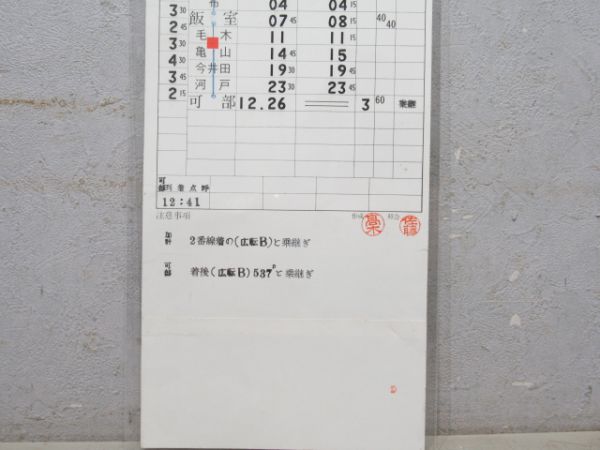 3 30 布 04 04 15
2 15 飯室 07 45 08 15 40 40
3 30 毛木 11 11 15
4 30 亀山 14 45 15
3 45 今井田 19 30 19 45
2 15 河戸 23 30 23 45
可部 12.26 3 60 乗継
可部到着点呼
12:41
注意事項
加計 2番線着の(広転B)と乗継ぎ
可部 着後(広転B)537Dと乗継ぎ